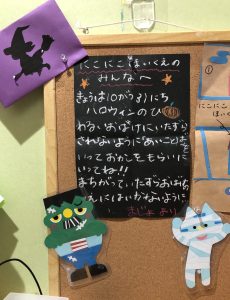 にこにこほいくえんの
みんなへ
きょうは10がつ31にち
ハロウィンのひ
わるいおばけにいたずら
されないように「あいことば」を
いっておかしをもらいに
いってね!!
まちがって、いたずらおばけ
えにはいかないように
まじょより
①
にこにこ
ほいく